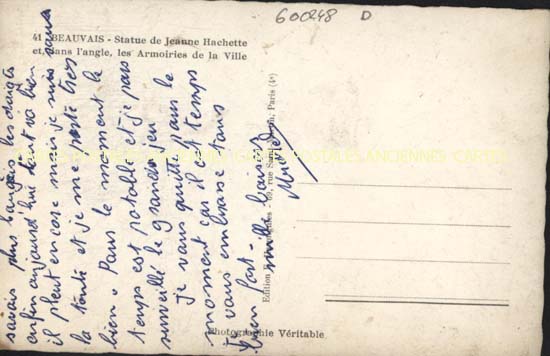 600248 D
41 BEAUVAIS - Statue de Jeanne Hachette
et, dans l'angle, les Armoiries de la Ville
savais plus bouger les doigts
enfin aujourd'hui tout va bien
il pleut encore mais je suis sous
la tente et je me porte très
bien. Dans le moment le
temps est potable et je pars
surveillé le grand jeu
je vous quitte pour le
moment car il est temps
je vous embrasse tous
bien fort. mille baisers
Edition R. 69, rue Paris (4e)
CARTES POSTALES ANCIENNES
Photographie Véritable